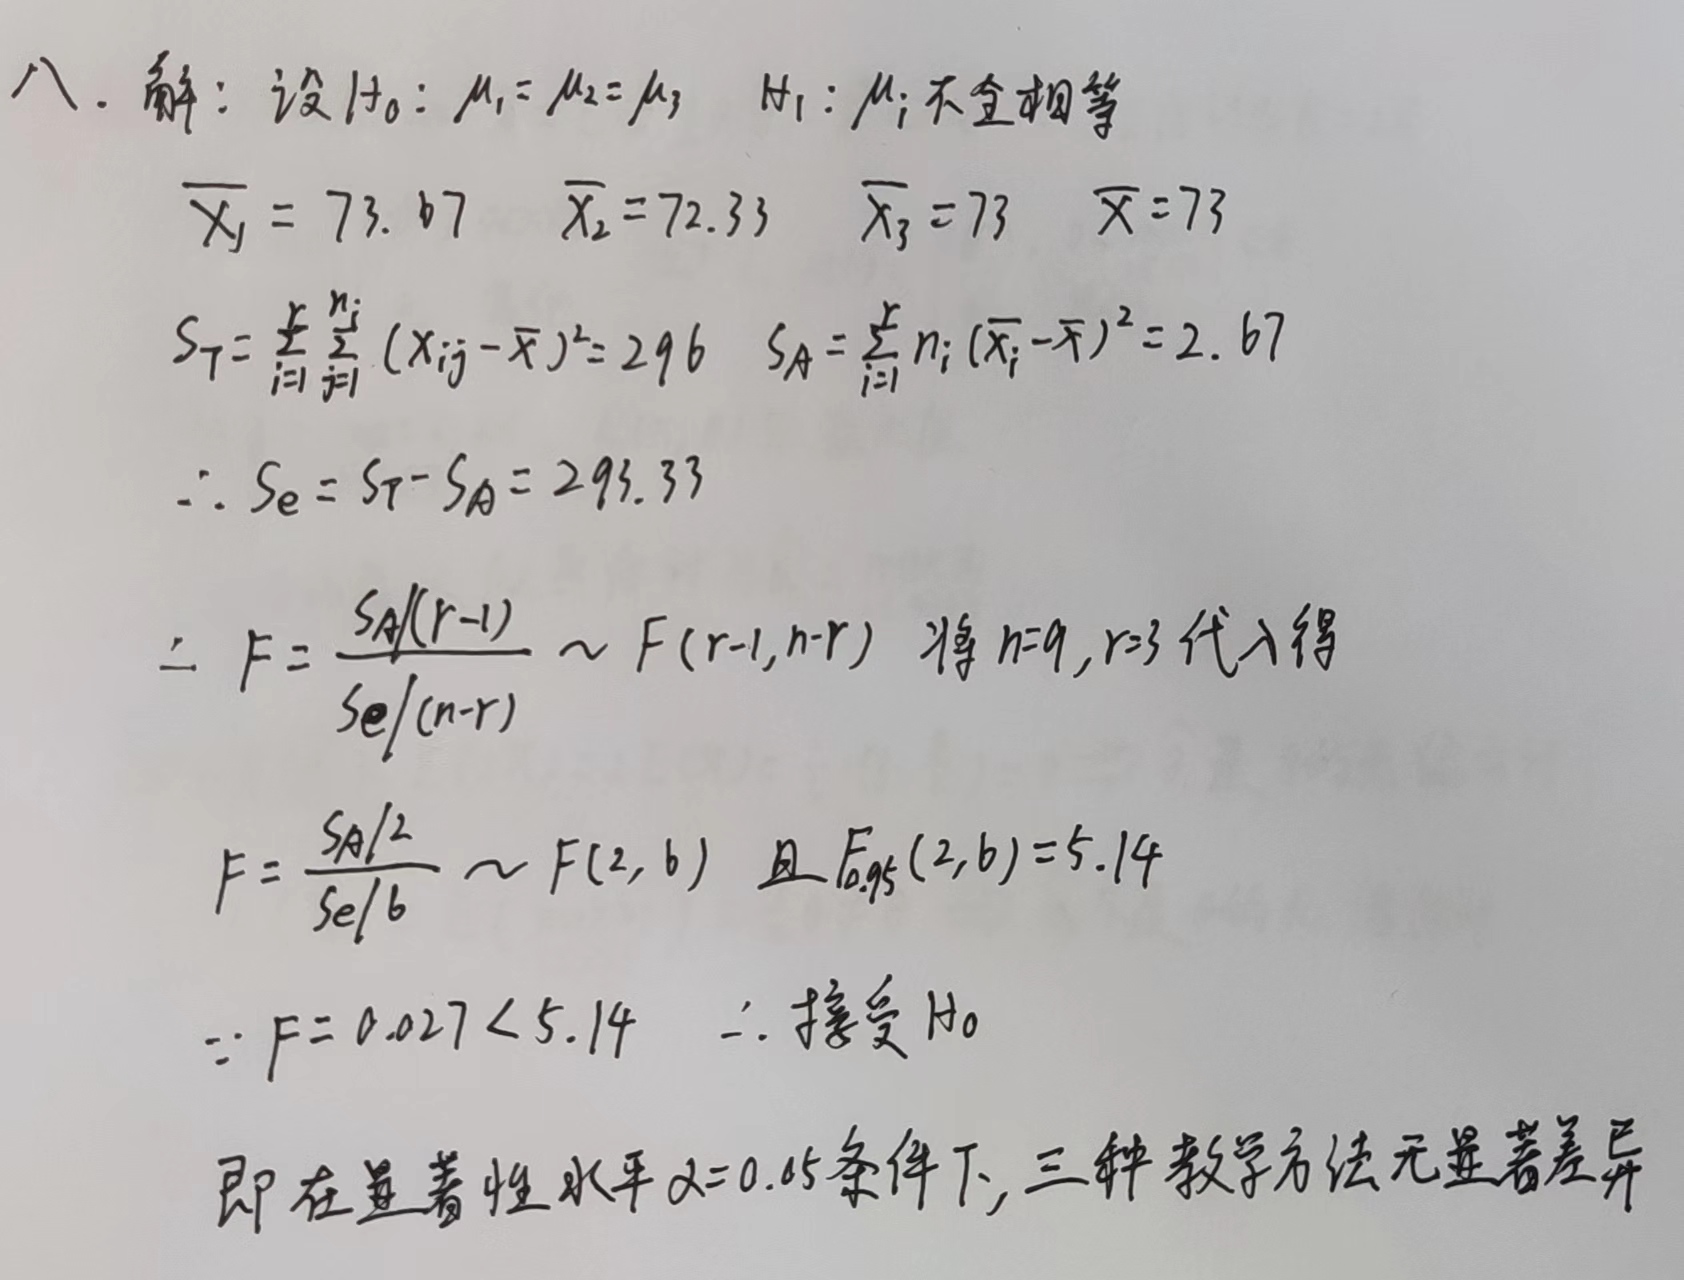 八. 解: 设 H₀: μ₁=μ₂=μ₃ H₁: μᵢ不全相等
X̄₁ = 73.67 X̄₂=72.33 X̄₃=73 X̄=73
S_T=∑_{i=1}^{r}∑_{j=1}^{n_i}(x_{ij}-x̄)²=296 S_A=∑_{i=1}^{r}n_i(x̄_i-x̄)²=2.67
∴ Se = S_T-S_A=293.33
∴ F=\frac{S_A/(r-1)}{Se/(n-r)} ~ F(r-1,n-r) 将 n=9,r=3代入得
F=\frac{S_A/2}{Se/6} ~ F(2,6) 且 F_{0.95}(2,6)=5.14
∵ F=0.027<5.14 ∴ 接受 H₀
即在显著性水平α=0.05条件下,三种教学方法无显著差异